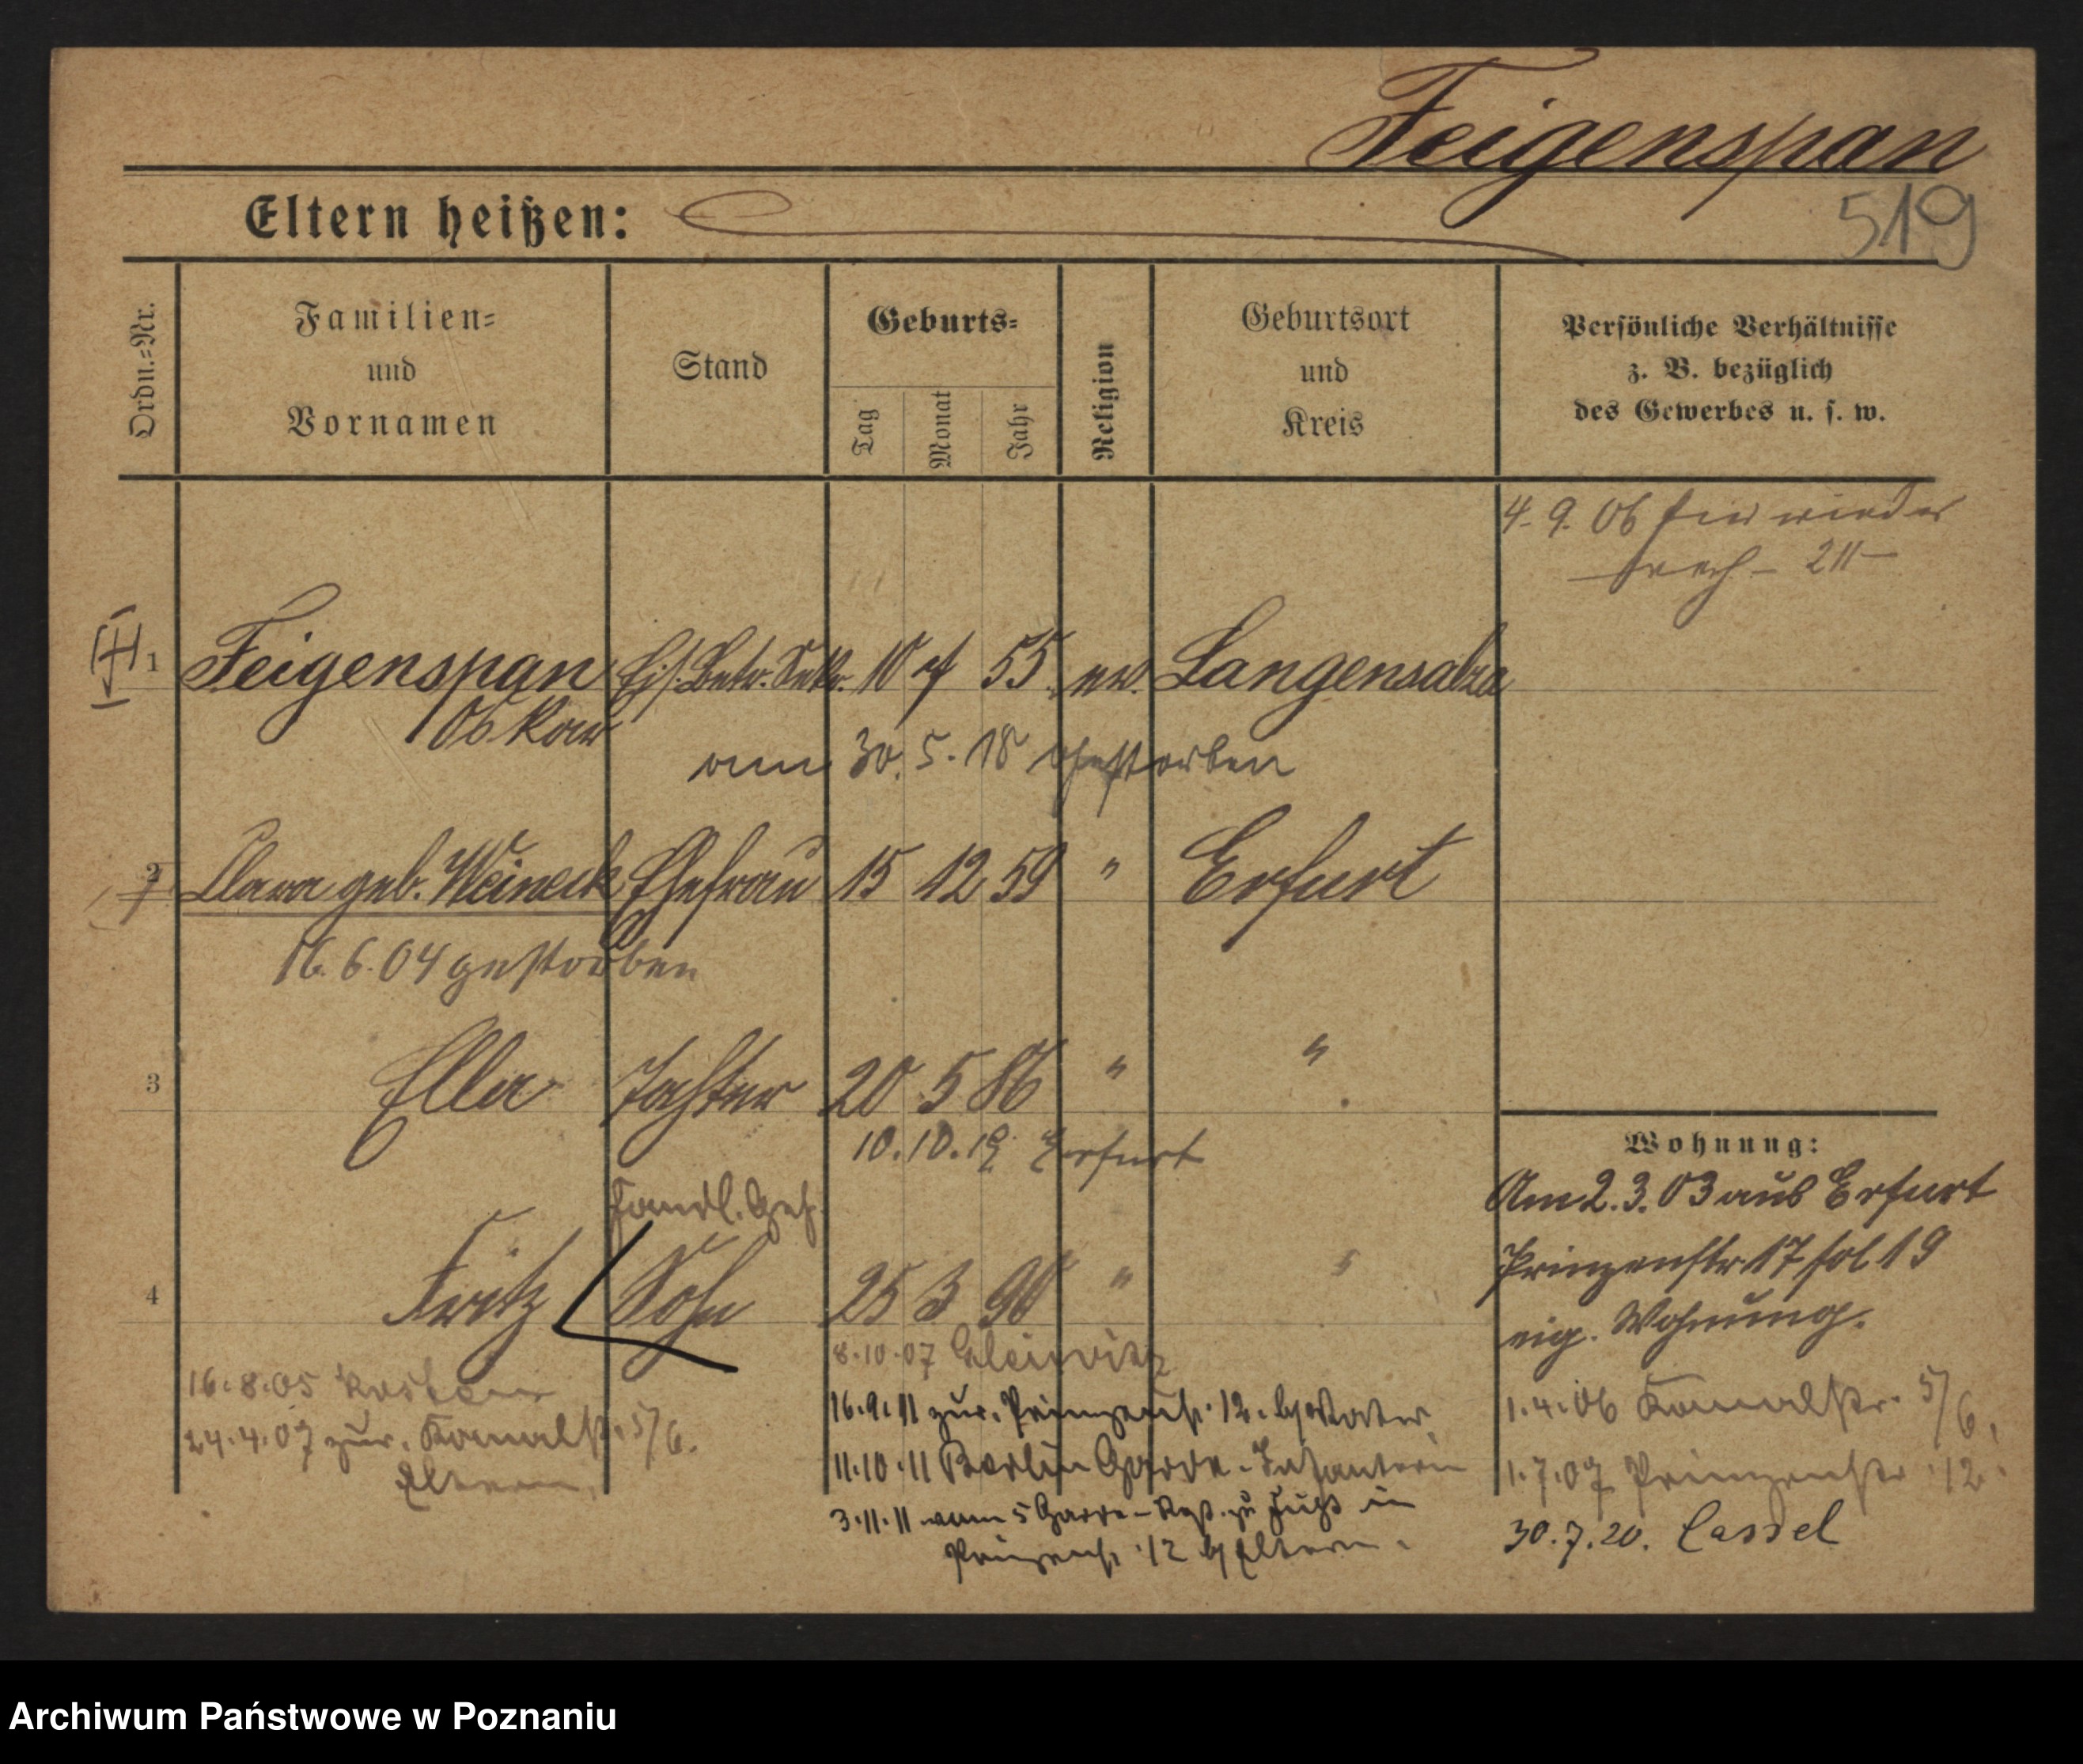 Feigenspan
519
Eltern heißen:
Ordn.-Nr.
Familien- und Vornamen
Stand
Geburts-
Tag
Monat
Jahr
Religion
Geburtsort und Kreis
Persönliche Verhältnisse
z. B. bezüglich
des Gewerbes u. s. w.
4. 9. 06 wieder
211
1 Feigenspan Eis. Betr. Sekr. 10 55 ev. Langensalza
Oskar
am 30. 5. 18 gestorben
2 Clara geb. Weineck Ehefrau 15 12 59 " Erfurt
16. 6. 04 gestorben
3 Ella Tochter 20 5 86 " "
10. 10. 19 Erfurt
Handl. Geh.
4 Fritz Sohn 25 3 90 " "
8. 10. 07 Gleiwitz
16. 8. 05 Kosten
24. 4. 07 zur. Kanalstr. 5/6.
Eltern.
16. 9. 11 zur. Prinzenstr. 12. b/ Vater
11. 10. 11 Berlin Garde-Infanterie
3. 11. 11 vom 5 Garde-Regt. zu Fuß in
Prinzenstr. 12 b/ Eltern.
Wohnung:
Am 2. 3. 03 aus Erfurt
Prinzenstr 17 fol 19
eig. Wohnung.
1. 4. 06 Kanalstr. 5/6.
1. 7. 07 Prinzenstr. 12.
30. 7. 20. Cassel
Archiwum Państwowe w Poznaniu